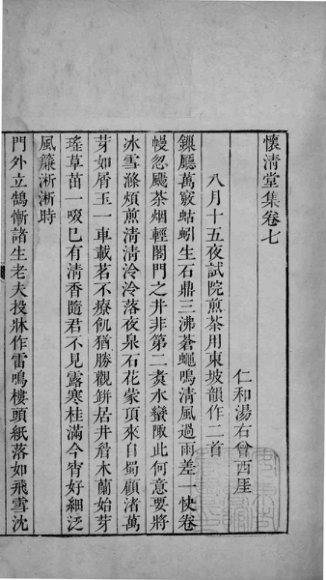 懷清堂集卷七
仁和湯右曾西厓
八月十五夜試院煎茶用東坡韻作二首
鎖廳萬竅蛄蚓生石鼎三沸蒼蠅鳴清風過雨差一快卷
幔忽颺茶烟輕閣門之井非第二煑水蠻陬此何意要將
冰雪滌煩煎清清泠泠落夜泉石花蒙頂來自蜀顧渚萬
芽如屑玉一車載茗不療飢猶勝觀缾居井眉木蘭始芽
瑤草苗一啜已有清香隨君不見露寒桂滿今宵好細泛
風簾淅淅時
門外立鵠慚諸生老夫投牀作雷鳴樓頭紙落如飛雪沈